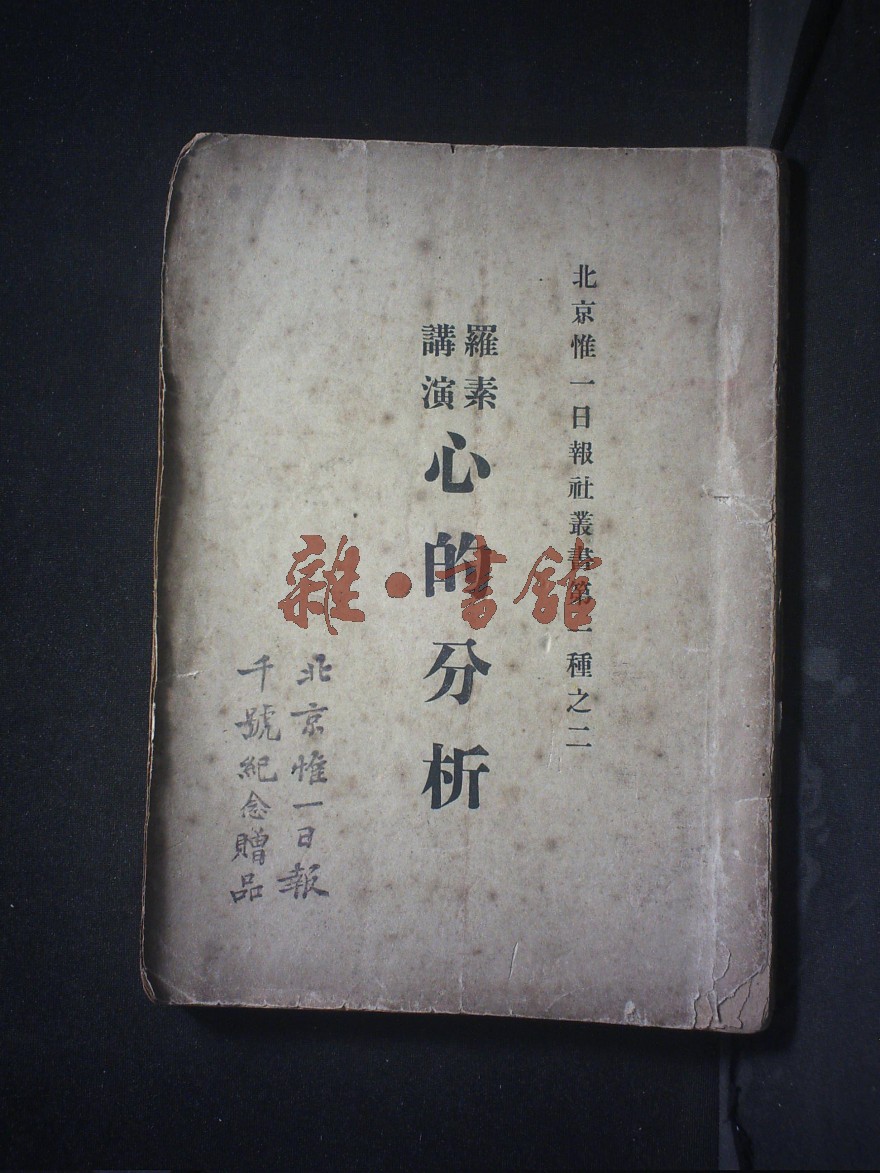 北京惟一日報社叢書第一種之二
羅素
講演
心的分析
北京惟一日報
千號紀念贈品
雜·書館